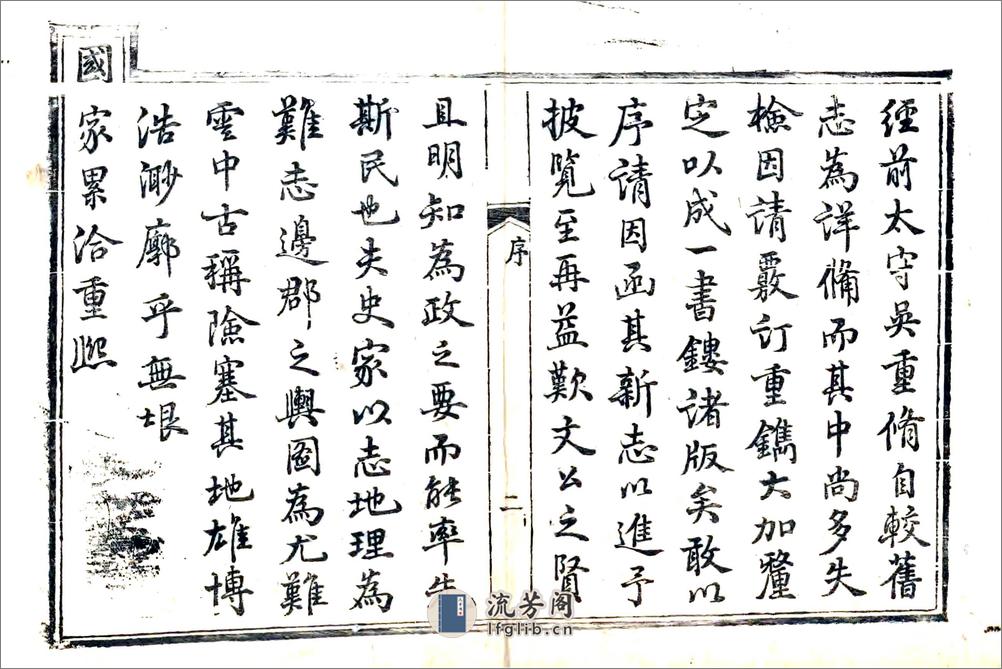 經前太守吳重脩自較舊
志為詳備而其中尚多失
檢因請覈訂重鐫大加釐
定以成一書鏤諸版矣敢以
序請因函其新志以進予
披覽至再益歎文公之賢
序
二
且明知為政之要而能率先
斯民也夫史家以志地理為
難志邊郡之輿圖為尤難
雲中古稱險塞其地雄博
浩渺廓乎無垠
國
家累洽重熙
流芳阁
lfglib.cn